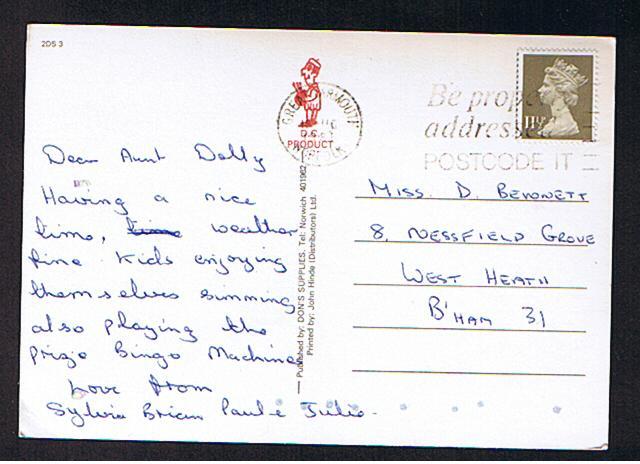 2DS 3
GREAT YARMOUTH
NORFOLK
D.C.
PRODUCT
Be prop
addresse
POSTCODE IT
11½P
Dear Aunt Dolly
Having a nice
time, time weather
fine Kids enjoying
themselves simming
also playing the
prize Bingo Machines
Love from
Sylvia Brian Paul & Julie.
Published by: DON'S SUPPLIES. Tel: Norwich 401962
Printed by: John Hinde (Distributors) Ltd.
MISS. D. BENNETT
8, NESSFIELD GROVE
WEST HEATH
B'HAM 31